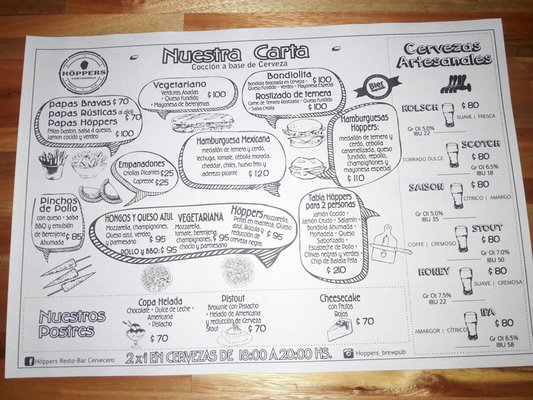 HÖPPERS
CERVECERÍA
Nuestra Carta
Cocción a base de Cerveza
Papas Bravas $ 70
Papas Rústicas al ajoli $ 70
Papas Höppers
Fritas baston, salsa 4 quesos,
Jamón cocido y verdeo
$ 100
Vegetariano
Verduras Asadas
- Queso Fundido
- Mayonesa de berenjenas
$ 100
Bondiolita
Bondiola Braseada en Cerveza -
Queso Fundido
- Verdeo - Mayonesa Especial
$ 100
Rostizado de ternera
Carne de Ternera Rostizada - Queso Fundido
- Salsa Criolla
$ 100
Empanadores
Criollas Picantes $25
Capresse $25
Hamburguesa Mexicana
medallón de ternera y cerdo,
lechuga, tomate, cebolla morada,
cheddar, chiles, huevo frito y
aderezo picante
$ 120
Hamburguesas
Höppers:
medallón de ternera
y cerdo, cebolla
caramelizada, queso
fundido, repollo,
champignones y
mayonesa especial
$ 110
Pinchos
de Pollo
con queso - salsa
BBQ y emulsión
de Berenjena $ 85
Ahumada
HONGOS Y QUESO AZUL
Mozzarella, champignones,
Queso azul, verdeo
y parmesano
$ 95
POLLO y BBQ: $ 95
VEGETARIANA
Mozzarella,
tomate, berenjena,
champignones,
choclo y
parmesano
$ 95
Höppers Mozzarella,
Peras en manteca,
Queso azul, Rúcula y
reducción de
cerveza negra.
$ 95
Tabla Höppers
para 2 personas
Jamón Cocido -
Jamón Crudo - Salamín
- Bondiola Ahumada
- Mortadela - Queso
Saborizado -
Escabeche de Pollo -
Olivas negras y verdes -
Chip de Batata Frita
$ 210
Nuestros
Postres
Copa Helada
Chocolate - Dulce de Leche -
Americana
- Pistacho
$ 70
Pistout
Brownie con Pistacho
- Helado de Americana
y reducción de Cerveza
Stout
$ 70
Cheesecake
con Frutos
Rojos
$ 70
2x1 EN CERVEZAS DE 18:00 A 20:00 HS.
Höppers Resto-Bar Cervecero
Höppers_brewpub
Cervezas
Artesanales
KOLSCH $ 80
SUAVE | FRESCA
Gr Ol 5.0%
IBU 22
SCOTCH
$ 80
TORRADO DULCE
Gr Ol 6.5%
IBU 18
SAISON
$ 80
CÍTRICO | AMARGO
Gr Ol 5.0%
IBU 35
STOUT
$ 80
COFFE | CREMOSO
Gr Ol 7.0%
IBU 50
HONEY
$ 80
SUAVE | CREMOSA
Gr Ol 7.5%
IBU 22
IPA
$ 80
AMARGOR | CÍTRICO
Gr Ol 6.5%
IBU 58